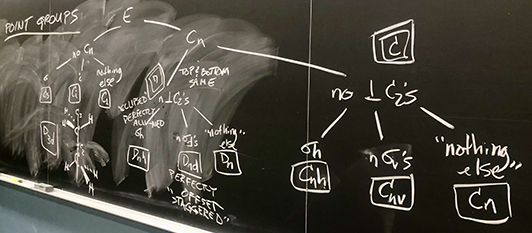 POINT GROUPS
E
no Cn
Cn
σ
i
nothing
else
Cs
Ci
C1
D
TOP & BOTTOM
SAME
n ⊥ C2's
"ECLIPSED"
PERFECTLY
ALIGNED
σh
nσd's
"nothing
else"
Dnh
Dnd
Dn
PERFECTLY
"OFFSET
STAGGERED"
D3d
H
H
H
C
no ⊥ C2's
σh
nσv's
"nothing
else"
Cnh
Cnv
Cn